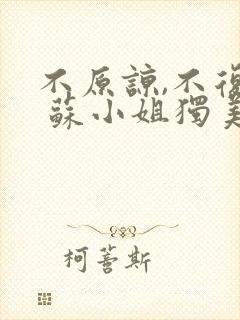 不原諒,不復
蘇小姐獨美
柯薏斯